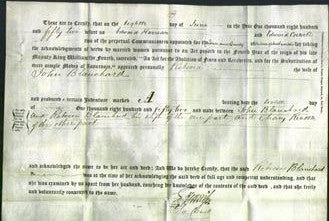 These are to Certify, that on the Eighth day of June in the Year One thousand eight hundred
and fifty two before us Edward
two of the perpetual Commissioners appointed for the
taking the acknowledgments of deeds by married women pursuant to an Act passed in the Fourth Year of the reign of his late
Majesty King William the Fourth, intituled, "An Act for the Abolition of Fines and Recoveries, and for the Substitution of
more simple Modes of Assurance," appeared personally Rebecca the Wife of
John Blanchard
and produced a certain Indenture marked A bearing date the day
of one thousand eight hundred and fifty two and made between John Blanchard
and Rebecca Blanchard his wife of the one part and
of the other part
and acknowledged the same to be her act and deed: And We do hereby Certify, that the said Rebecca Blanchard
was at the time of her acknowledging the said deed of full age and competent understanding, and that
she was examined by us apart from her husband, touching her knowledge of the contents of the said deed, and that she freely
and voluntarily consented to the same.